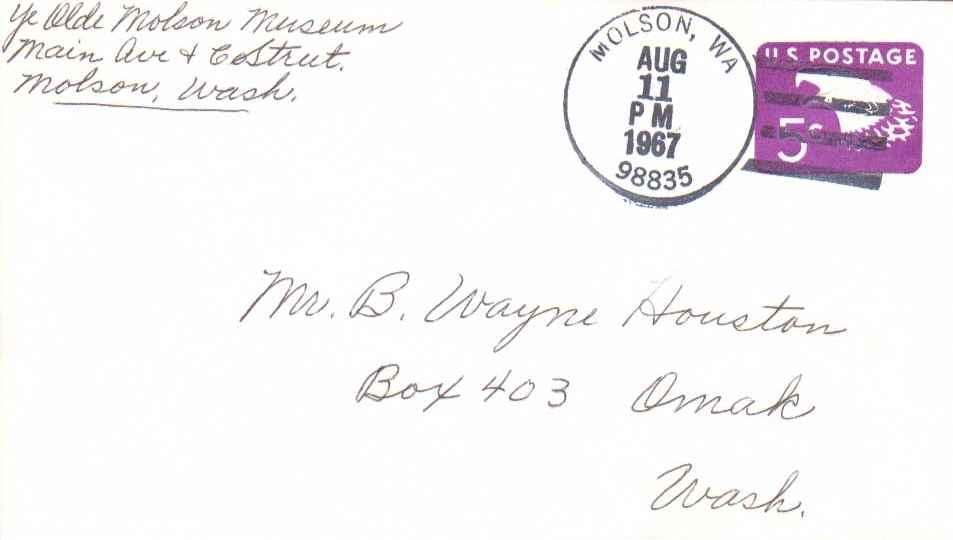 Ye Olde Molson Museum
Main Ave & C Street.
Molson, Wash.
MOLSON, WA
AUG
11
PM
1967
98835
U.S. POSTAGE
5¢
Mr. B. Wayne Houston
Box 403 Omak
Wash.